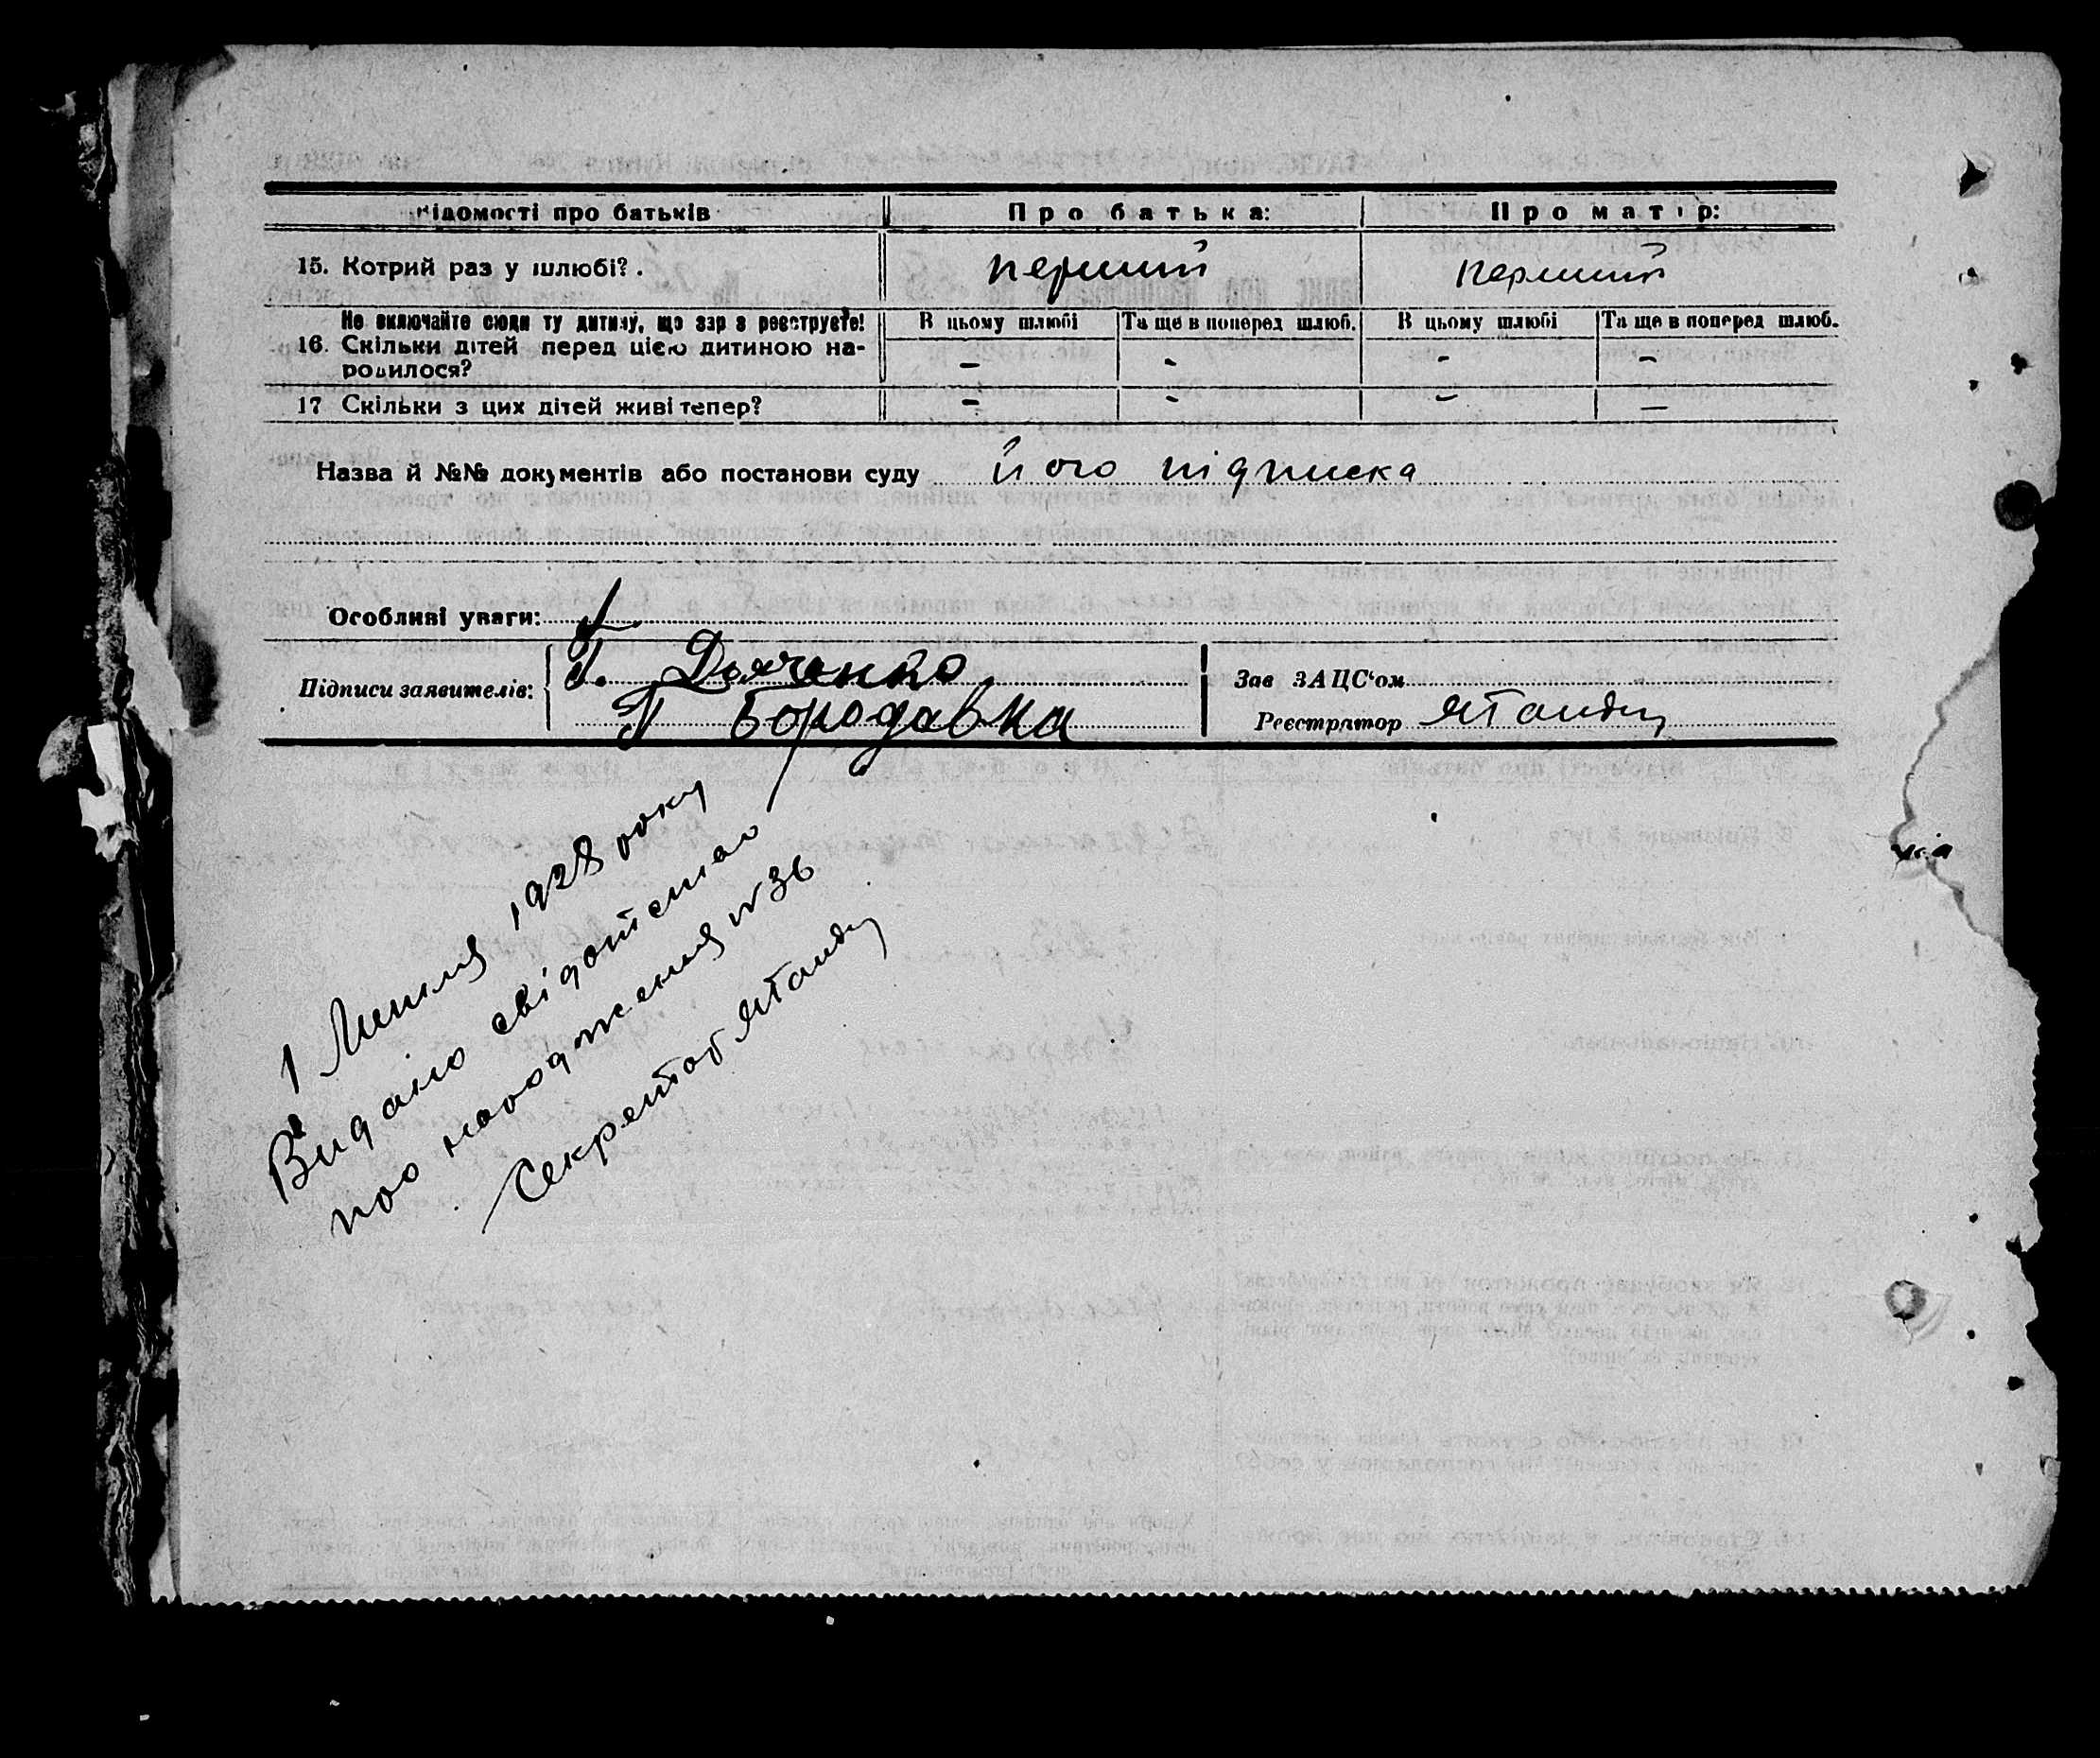 Відомості про батьків Про батька: Про матір:
15. Котрий раз у шлюбі? перший перший
Не включайте сюди ту дитину, що зар з реєструєте! В цьому шлюбі Та ще в поперед шлюб. В цьому шлюбі Та ще в поперед шлюб.
16. Скільки дітей перед цією дитиною на-
родилося? - - - -
17 Скільки з цих дітей живі тепер? - - - -
Назва й №№ документів або постанови суду його підписка
Особливі уваги:
Підписи заявителів: Г. Дяченко Зав ЗАЦС'ом
Г Бородавка Реєстратор
1 Липня 1928 року
Видано свідоцтво
про народження N 36
Секретар